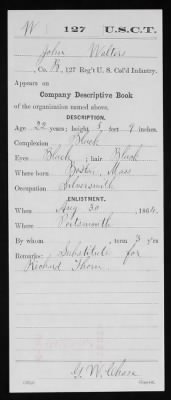 W 127 U.S.C.T.
John Walters
, Co. B, 127 Reg't U. S. Col'd Infantry.
Appears on
Company Descriptive Book
of the organization named above.
DESCRIPTION.
Age 22 years; height 5 feet 9 inches.
Complexion Black
Eyes Black; hair Black
Where born Boston, Mass
Occupation Silversmith
ENLISTMENT.
When Aug 30, 1864.
Where Portsmouth
By whom , term 3 y'rs
Remarks: Substitute for
Richard Thorn.
G. W. Chase
Copyist.